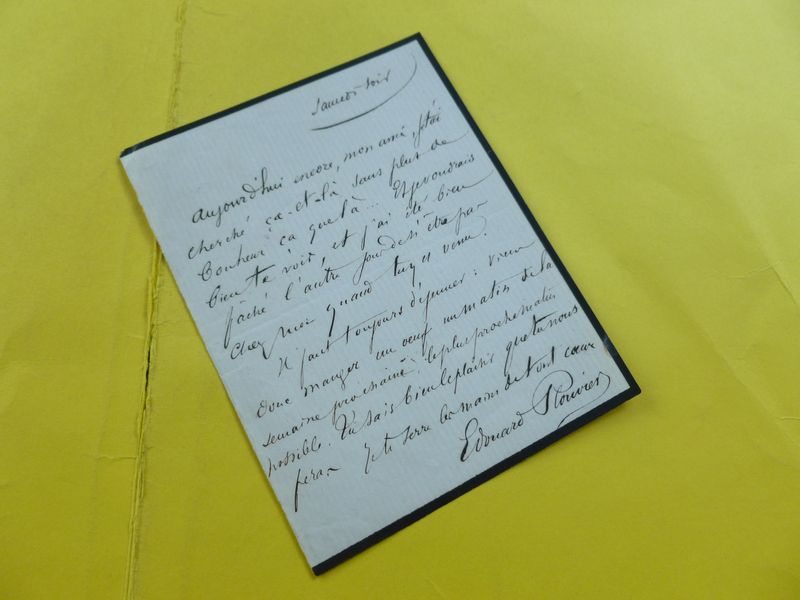 Samedi soir
Aujourd'hui encore, mon ami, je t'ai
cherché ça-et-là sans plus de
bonheur ça que là... Et je voudrais
bien te voir, et j'ai été bien
fâché l'autre jour de n'être pas
chez moi quand tu y es venu.
Il faut toujours déjeuner : viens
donc manger un oeuf un matin de la
semaine prochaine. le plus prochain matin
possible. Tu sais bien le plaisir que tu nous
feras. Je te serre les mains de tout coeur
Edouard Plouvier